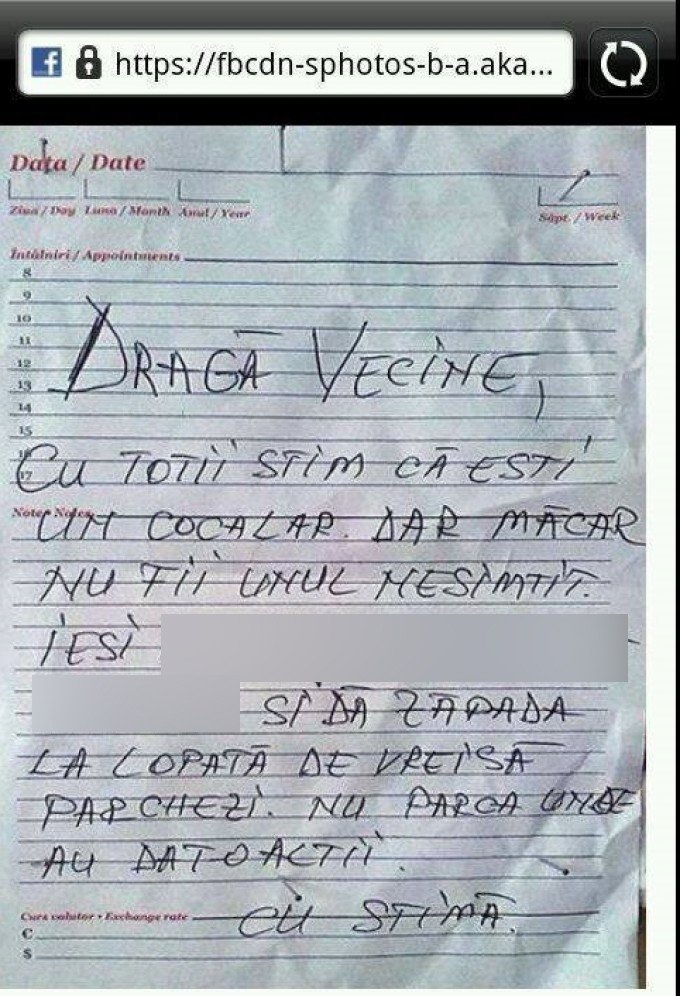 https://fbcdn-sphotos-b-a.aka...
Data / Date
Ziua / Day Luna / Month Anul / Year
Săpt. / Week
Întâlniri / Appointments
8
9
10
11
12
13
DRAGĂ VECINE,
14
15
16
17
CU TOTII STIM CĂ ESTI
Note / Notes
UN COCALAR. DAR MĂCAR
NU FII UNUL NESIMTIT.
IESI
SI DĂ ZĂPADA
LA LOPATĂ DE VREI SĂ
PARCHEZI. NU PARCA UNDE
AU DAT-O ALTII.
Curs valutar • Exchange rate
CU STIMĂ.
€
$